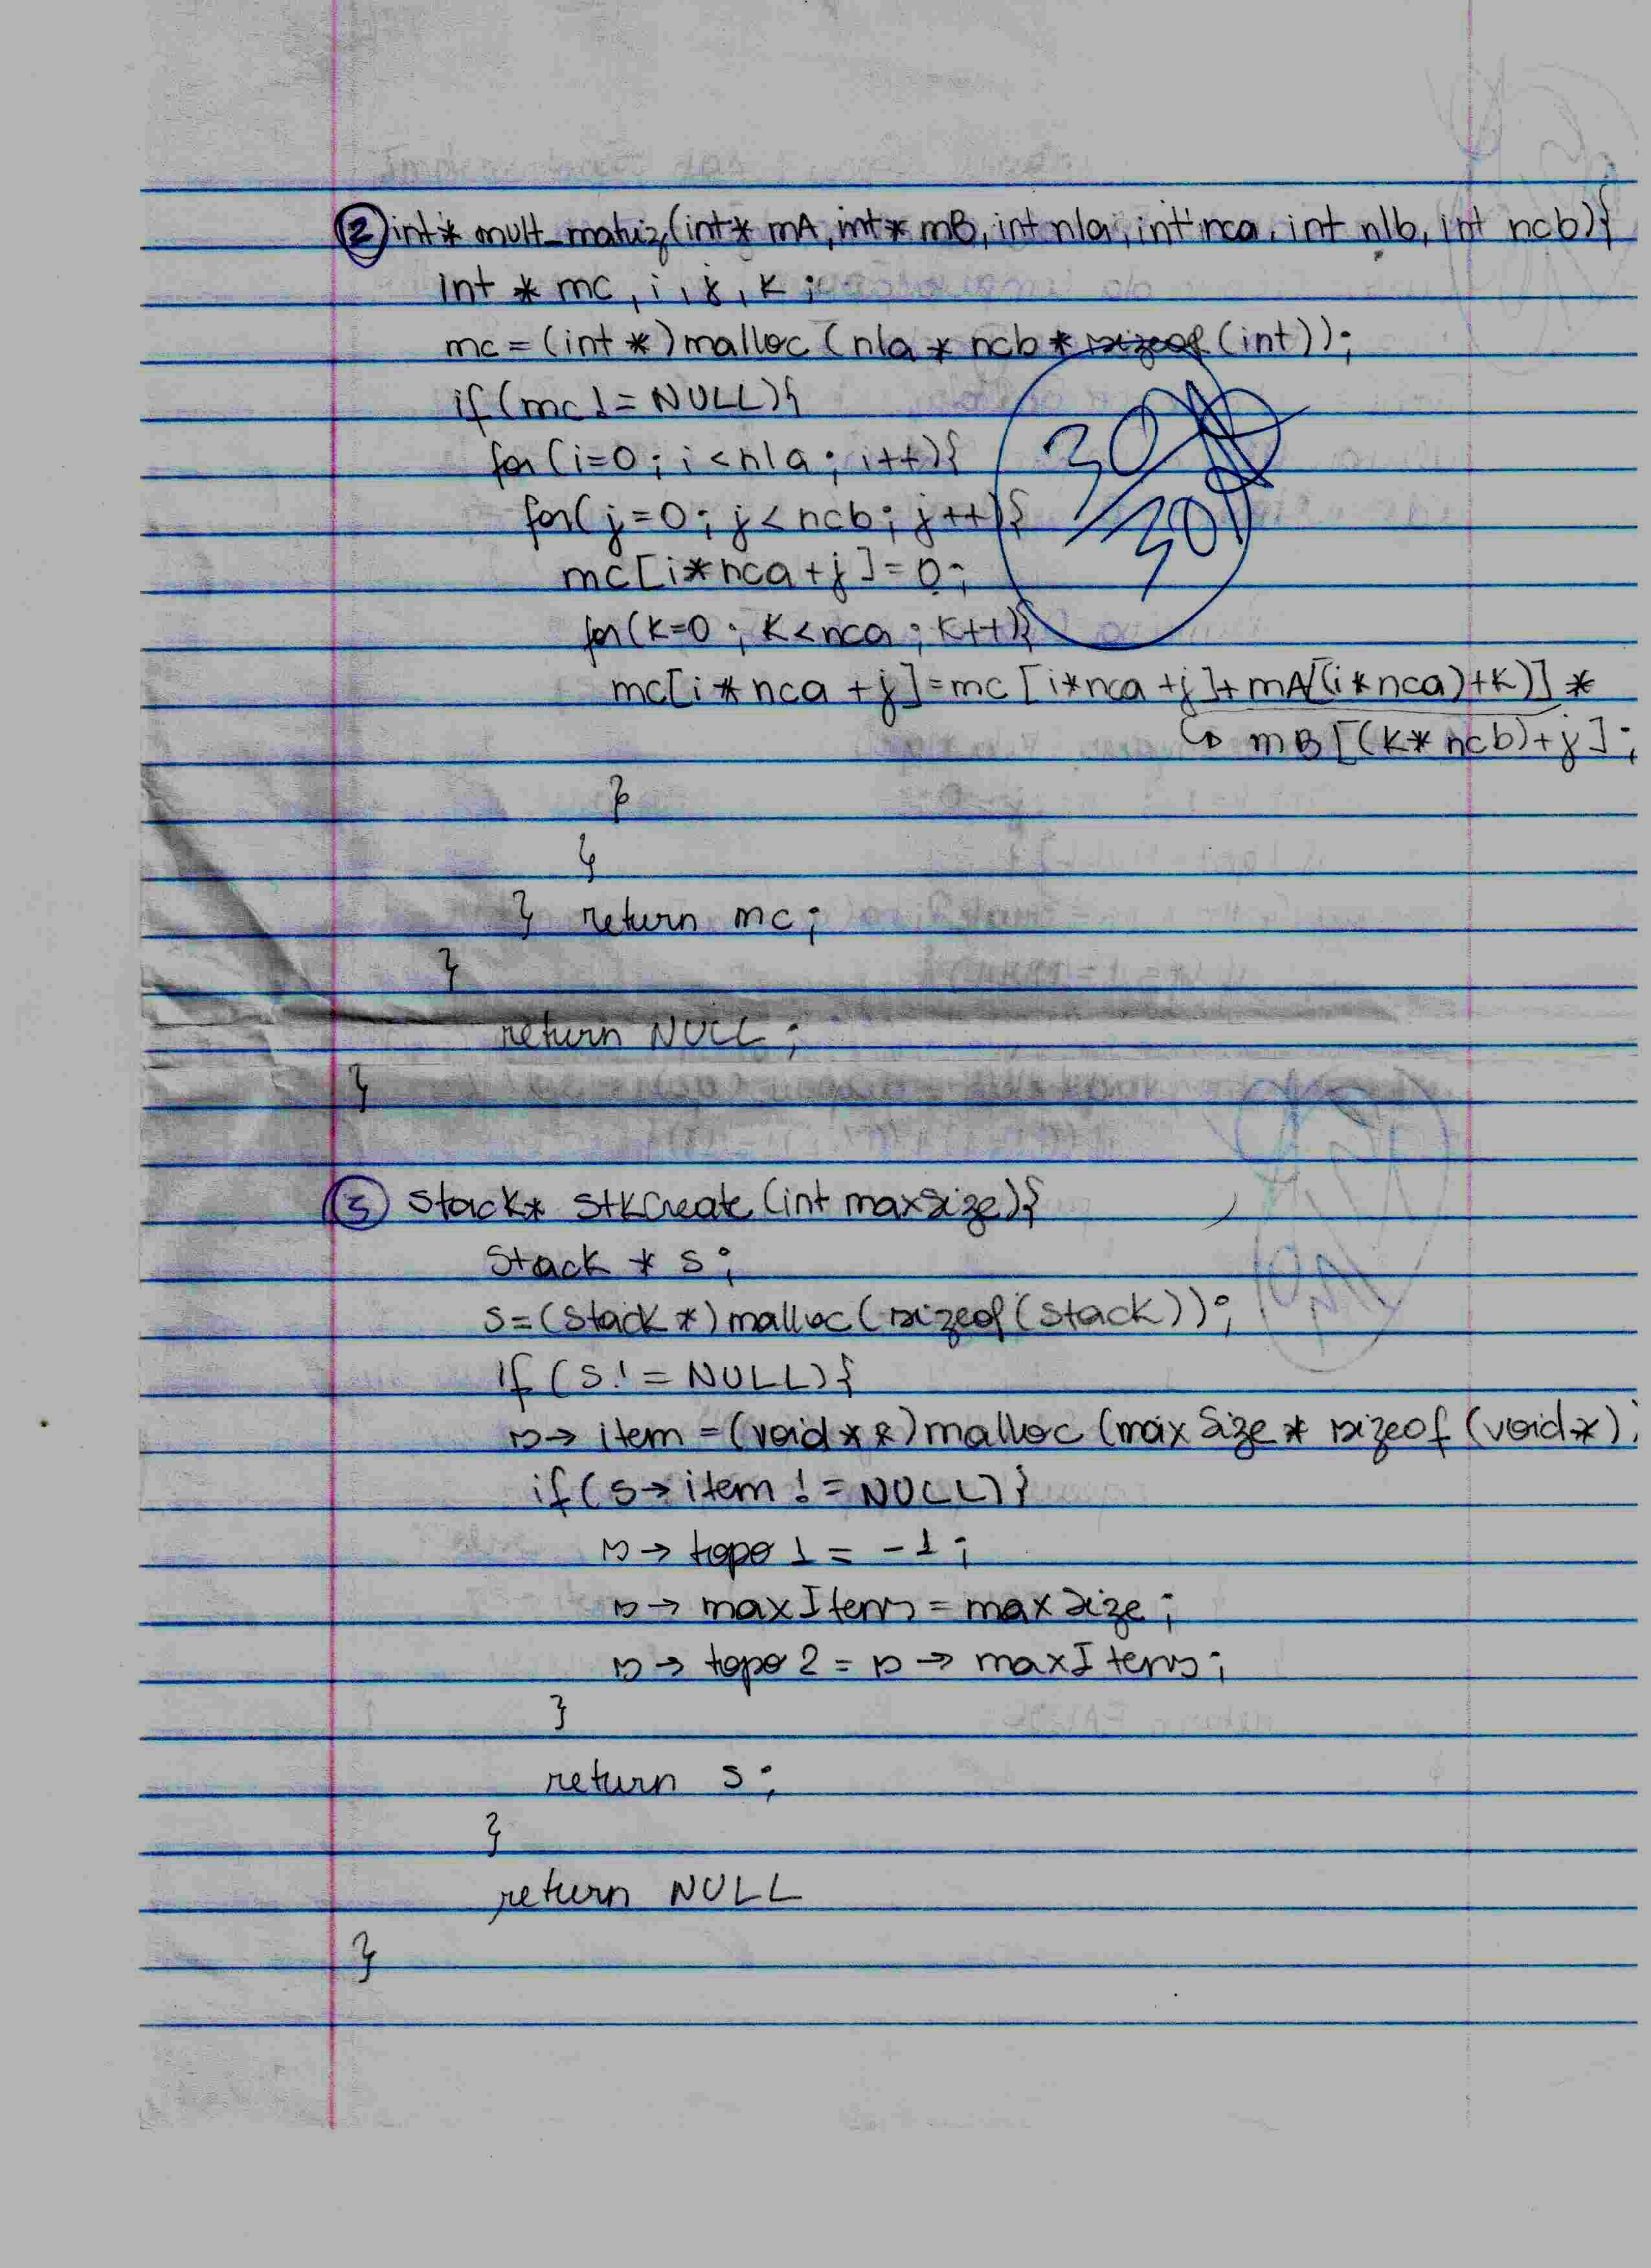 ② int* mult_matriz(int* mA, int* mB, int nla, int nca, int nlb, int ncb){
int * mc, i, j, k;
mc = (int *) malloc (nla * ncb * sizeof (int));
if (mc != NULL){
for (i=0; i<nla; i++){
for( j=0; j<ncb; j++){
mc[i*nca+j]=0;
for(k=0; k<nca; k++){
mc[i*nca+j]=mc[i*nca+j]+mA[(i*nca)+k)] *
↳ mB[(k*ncb)+j];
}
}
} return mc;
}
return NULL;
}
30
30
③ Stack* StkCreate (int maxSize){
Stack * s;
s=(Stack *) malloc (sizeof (Stack));
if (s != NULL){
s→ item = (void **) malloc (maxSize * sizeof (void*)
if (s→item != NULL){
s→ topo1 = -1;
s→ maxItens = maxSize;
s→ topo2 = s→ maxItens;
}
return s;
}
return NULL
}